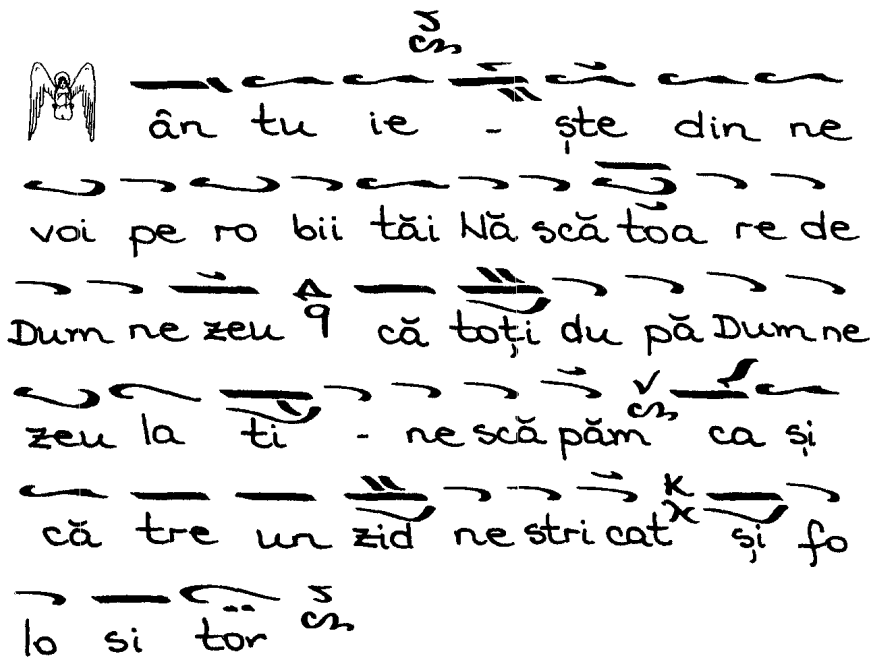 ân tu ie - ște din ne
voi pe ro bii tăi Nă scă toa re de
Dum ne zeu că toți du pă Dum ne
zeu la ti - ne scă păm ca și
că tre un zid ne stri cat și fo
lo si tor